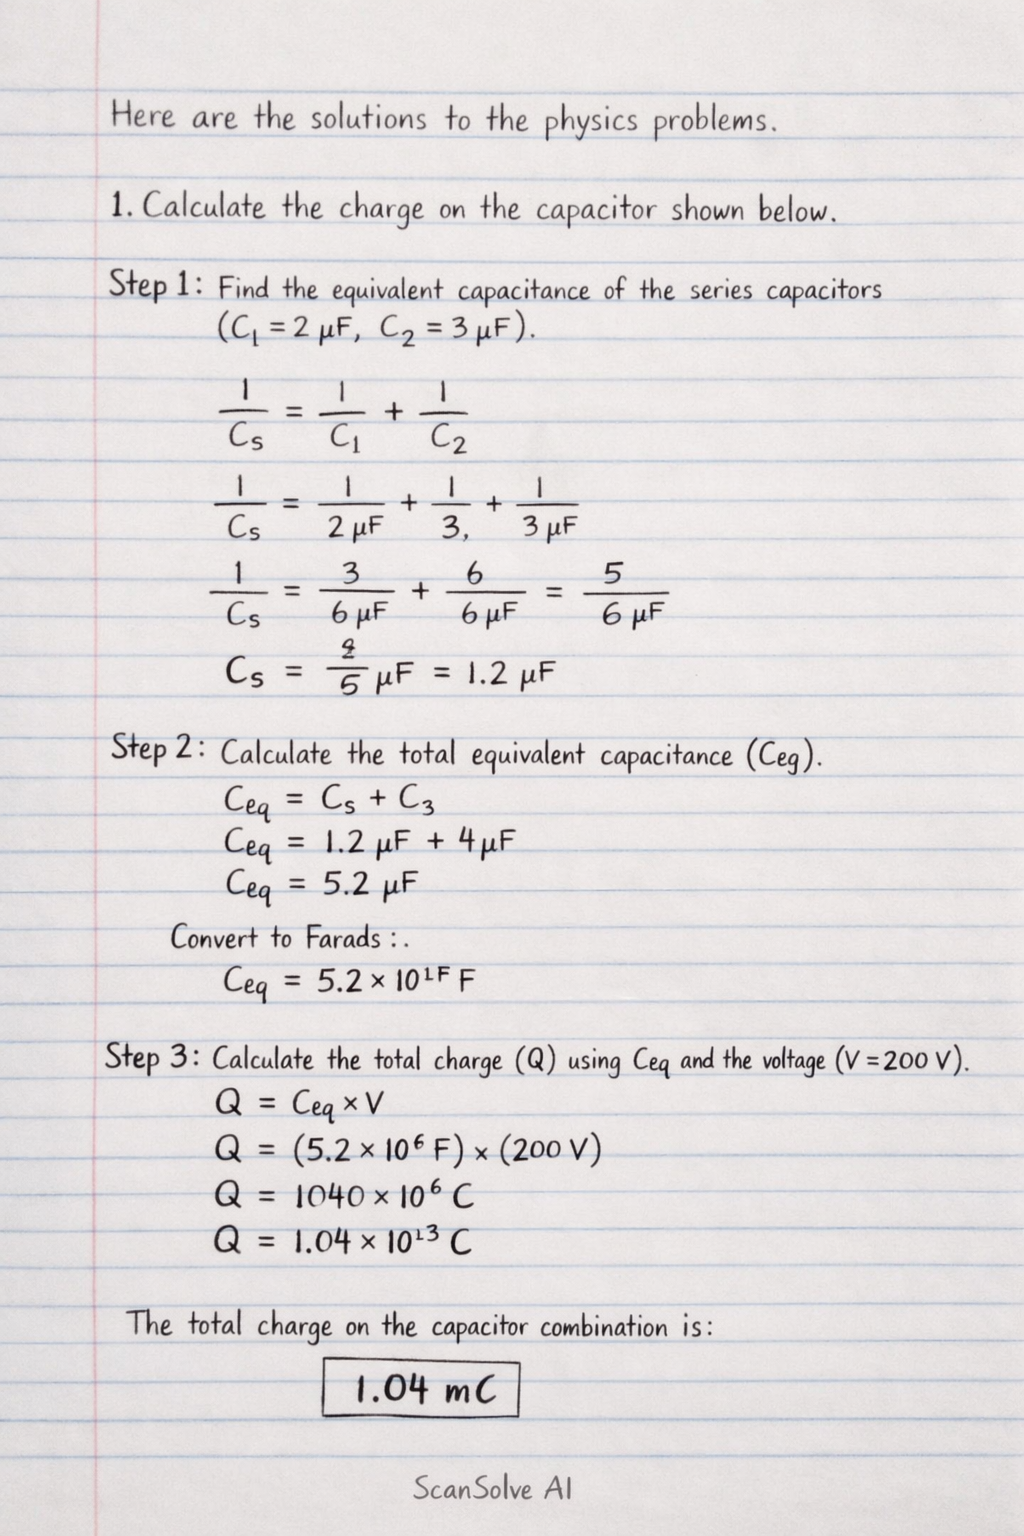 Here are the solutions to the physics problems.
1. Calculate the charge on the capacitor shown below.
Step 1: Find the equivalent capacitance of the series capacitors
(C₁ = 2 μF, C₂ = 3 μF).
1/Cs = 1/C₁ + 1/C₂
1/Cs = 1/2 μF + 1/3, + 1/3 μF
1/Cs = 3/6 μF + 6/6 μF = 5/6 μF
Cs = /5 μF = 1.2 μF
Step 2: Calculate the total equivalent capacitance (Ceg).
Ceq = Cs + C₃
Ceq = 1.2 μF + 4 μF
Ceq = 5.2 μF
Convert to Farads :.
Ceq = 5.2 × 10¹ᶠ F
Step 3: Calculate the total charge (Q) using Ceq and the voltage (V = 200 V).
Q = Ceq × V
Q = (5.2 × 10⁶ F) × (200 V)
Q = 1040 × 10⁶ C
Q = 1.04 × 10¹³ C
The total charge on the capacitor combination is:
1.04 mC
ScanSolve AI